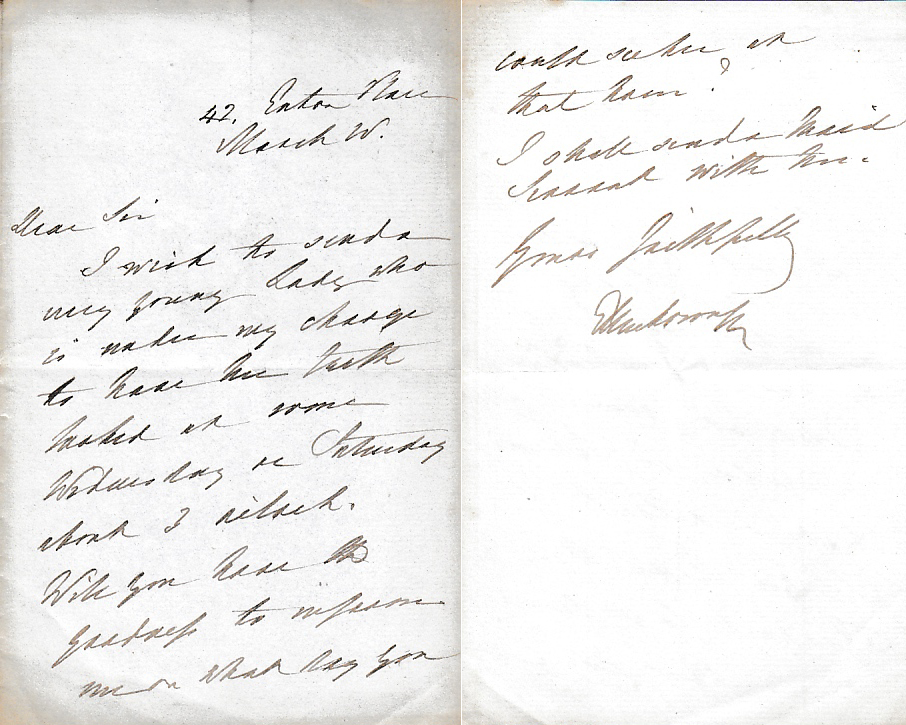 42, Eaton Place
March W.
Dear Sir
I wish to send a
very young Lady who
is under my charge
to have her teeth
looked at some
Wednesday or Saturday
about 3 o'clock.
Will you have the
goodness to inform
me on what day you
could see her at
that hour?
I shall send a Maid
Servant with her.
Yours faithfully